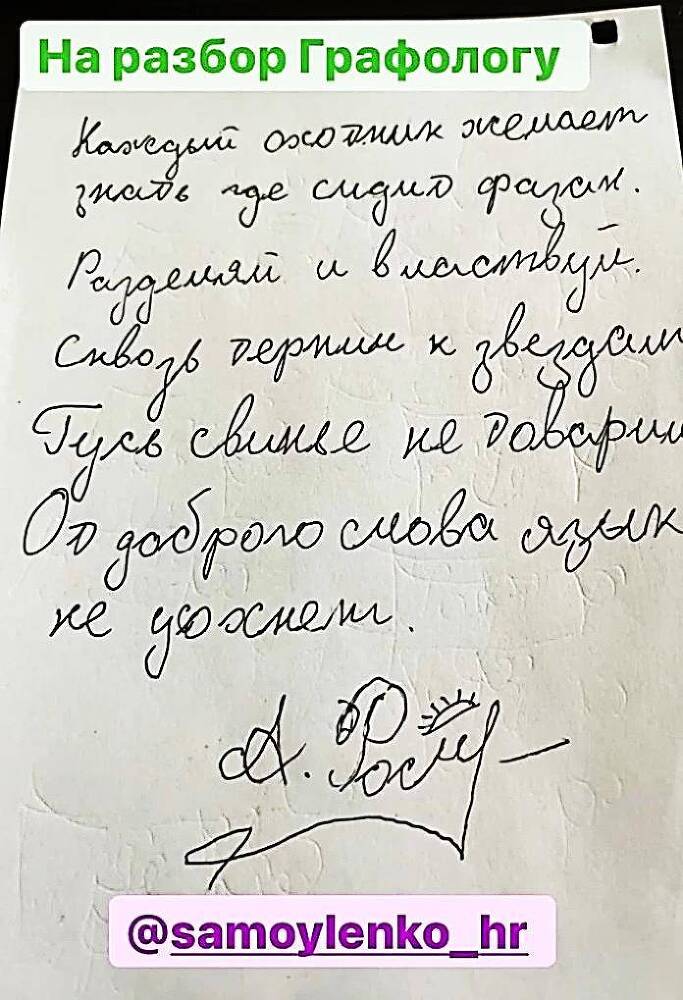 На разбор Графологу
Каждый охотник желает
знать где сидит фазан.
Разделяй и властвуй.
Сквозь терни к звездам
Гусь свинье не товарищ
От доброго слова язык
не усохнет.
А. Рос
@samoylenko_hr